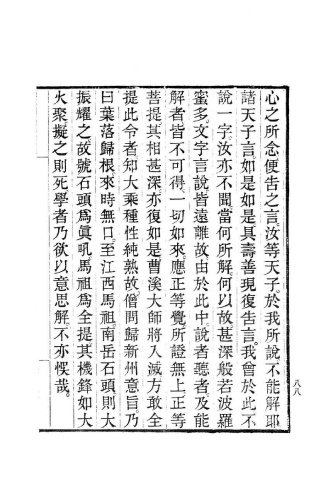 心之所念便告之言汝等天子於我所說不能解耶
諸天子言如是如是具壽善現復告言我曾於此不
說一字汝亦不聞當何所解何以故甚深般若波羅
蜜多文字言說皆遠離故由於此中說者聽者及能
解者皆不可得一切如來應正等覺所證無上正等
菩提其相甚深亦復如是曹溪大師將入滅方敢全
提此令者知大乘種性純熟故僧問歸新州意旨乃
曰葉落歸根來時無口至江西馬祖南岳石頭則大
振耀之故號石頭為眞吼馬祖為全提其機鋒如大
火聚擬之則死學者乃欲以意思解不亦悞哉
八八